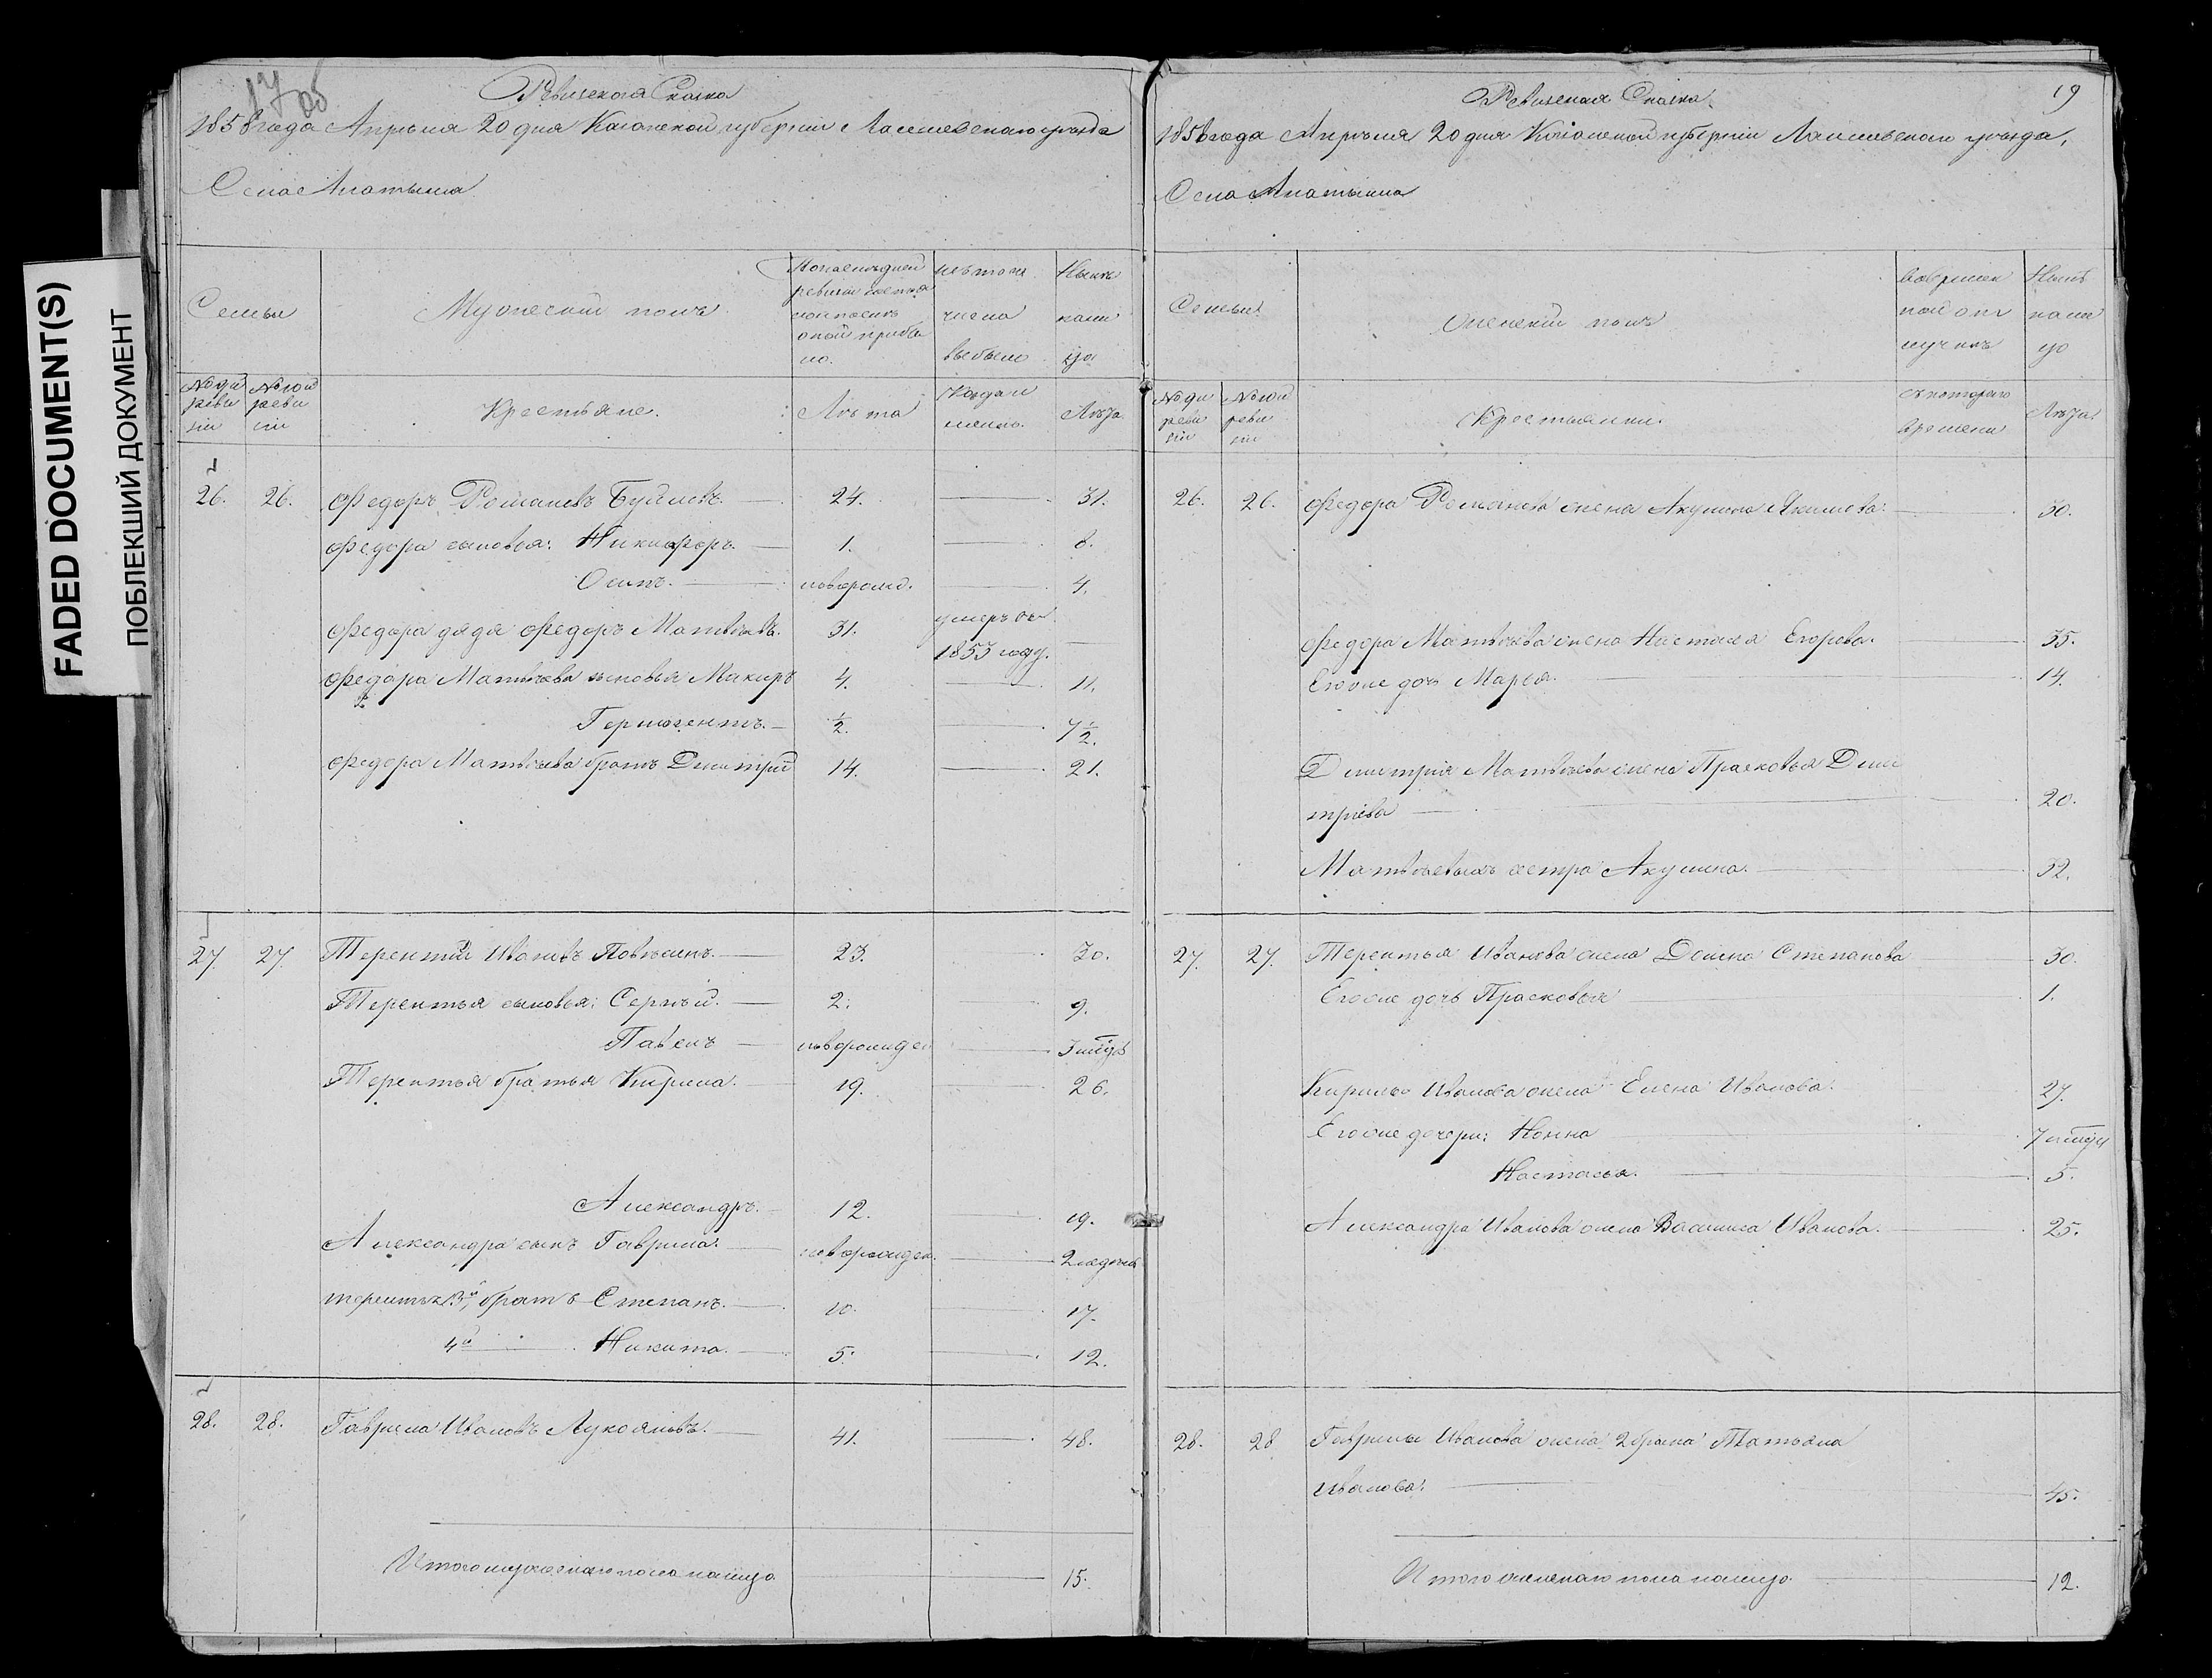 FADED DOCUMENT(S)
ПОБЛЕКШИЙ ДОКУМЕНТ
17 об
Ревизская Сказка
1858 года Апреля 20 дня Казанской губернии Лаишевскаго уѣзда
Села
Семьи
Мужеский полъ
По последней
ревизии состоя
ло и после
оной прибы
ло.
изъ того
числа
выбыло
Ныне
на ли
цо
№ 9й
реви
зіи
№ 10й
реви
зіи
Крестьяне.
Лѣта
Когда и
Лѣта
26. 26. Федоръ Романовъ 24. 31.
Федора сыновья: Никифоръ. 1. 8.
Осипъ. новорожд. 4.
Федора дядя Федоръ Матвѣевъ. 31. умеръ въ
1853 году.
Федора Матвѣева сыновья Макаръ 4. 11.
Гермогентъ. ½. 7½.
Федора Матвѣева братъ Дмитрій 14. 21.
27. 27. Терентій Ивановъ 23. 30.
Терентья сыновья: Сергѣй. 2. 9.
Павелъ новорожден
Терентья братья Кирила. 19. 26.
Александръ. 12. 19.
Александра сынъ Гаврила. новорожден. 2 недѣли
Терентья 3й братъ Степанъ. 10. 17.
4й Никита. 5. 12.
28. 28. Гаврила Ивановъ Лукояновъ. 41. 48.
Итого мужескаго пола налицо 15.
19
Ревизская Сказка.
1858 года Апрѣля 20 дня Казанской губерніи Лаишевскаго уѣзда,
Села
Семьи
Женскій полъ
во времен
ной от
лучкѣ
Нынѣ
на ли
цо
№ 9й
реви
зіи
№ 10й
реви
зіи
Крестьянки.
съ котораго
времени
Лѣта
26. 26. Федора Романова жена Акулина Акимова. 30.
Федора Матвѣева жена Настасья Егорова. 35.
Его же дочь Марья. 14.
Дмитрія Матвѣева жена Прасковья Дми
тріева 20.
Матвѣевыхъ сестра Акулина. 32.
27. 27. Терентья Иванова жена Домна Степанова 30.
Его же дочь Прасковья 1.
Кирилы Иванова жена Елена Иванова. 27.
Его же дочери: 
Настасья. 5.
Александра Иванова жена Василиса Иванова. 25.
28. 28 Гаврилы Иванова жена 2 брака Татьяна
Иванова. 45.
Итого женскаго пола налицо 12.